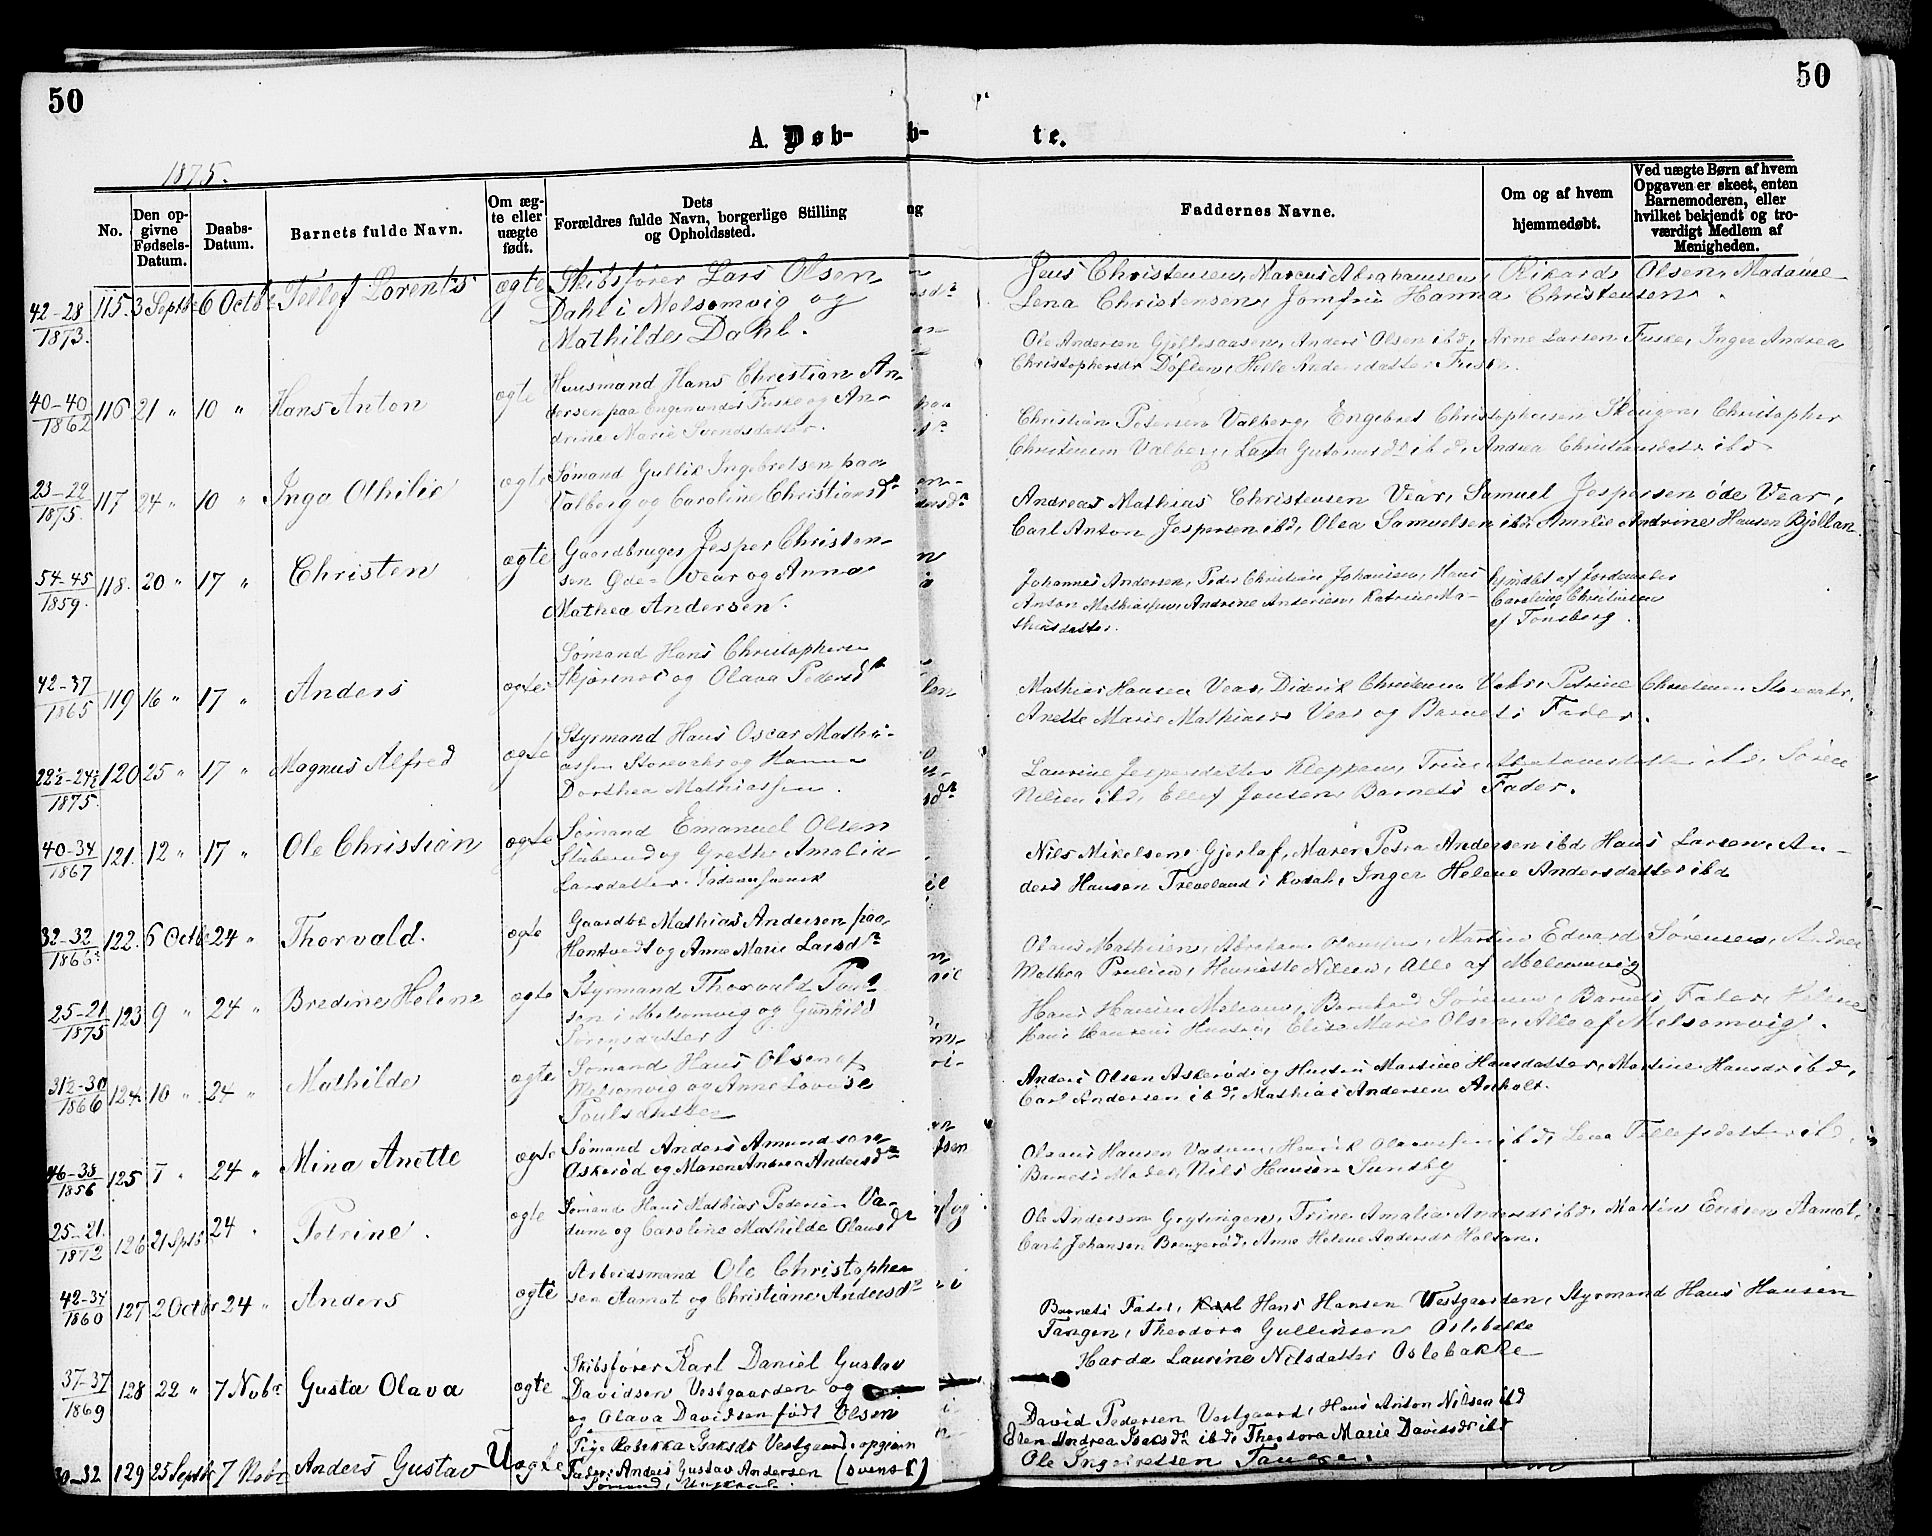 50
50
A. Døb-
b-
te.
1875.
No.
Den opgivne Fødsels-Datum.
Daabs-Datum.
Barnets fulde Navn.
Om ægte eller uægte født.
Dets
Forældres fulde Navn, borgerlige Stilling
og Opholdssted.
og
Faddernes Navne.
Om og af hvem
hjemmedøbt.
Ved uægte Børn af hvem
Opgaven er skeet, enten
Barnemoderen, eller
hvilket bekjendt og tro-
værdigt Medlem af
Menigheden.
42-28
1873.
115. 3 Septbr 6 Octbr Tollef Lorents ægte Skibsfører Lars Olsen
Dahl i Melsomvig og
Mathilde Dahl.
Jens Christensen, Marcus Abrahamsen, Rikard Olsen, Madame
Lena Christensen, Jomfru Hanna Christensen.
40-40
1862
116 21 " 10 " Hans Anton ægte Huusmand Hans Christian An-
dersen paa Engen under Fuske og An-
drine Marie Svendsdatter.
Ole Andersen Gjellesaasen, Anders Olsen ibd, Arne Larsen Fuske, Inger Andrea
Christophersdr Døflen, Helle Andersdatter Fuske
23-22
1875.
117 24 " 10 " Inga Othilie ægte Sømand Gullik Ingebretsen paa
Valberg og Caroline Christiansdr
Christian Petersen Valberg, Engebret Christophersen Skougen, Christopher
Christensen Valberg, Lava ibd, Andrea Christiansdatr ibd
54-45
1859.
118. 20 " 17 " Christen ægte Gaardbruger Jesper Christen-
sen Øde-Vear og Anna
Mathea Andersen.
Andreas Mathias Christensen Vear, Samuel Jespersen Øde Vear,
Carl Anton Jespersen ibd, Olea Samuelsen ibd, Amilie Andrine Hansen Bjellan
42-37
1865
119 16 " 17 " Anders ægte Sømand Hans Christophersen
Skjærsnes og Olava Pedersdr
Johannes Andersen, Peder Christian Johansen, Hans
Anton Mathiassen, Andrine Andersen, Katrine Ma-
thiasdatter.
af Jordemoder
Caroline Christensen
af Tønsberg.
22½-24½
1875.
120 25 " 17 " Magnus Alfred ægte Styrmand Hans Oscar Mathi-
assen Storevahr og Hanna
Dorthea Mathiassen.
Mathias Hansen Vear, Diderik Christensen Vahr, Petrine Christensen Storevahr,
Anette Marie Mathiasd Vear og Barnets Fader.
40-34
1867
121. 12 " 17 " Ole Christian ægte Sømand Emanuel Olsen
Stuberud og Grethe Amalia
Larsdatter.
Laurine Jespersdatter Kleppan, Trine ibd, Søren
Nilsen ibd, Ellef Jensen, Barnets Fader.
32-32
1866
122. 6 Octbr 24 " Thorvald. ægte Gaardbr Mathias Andersen paa
Hontvedt og Anne Marie Larsdr
Nils Mikelsen Gjerlaf, Maren Petra Andersen ibd, Hans Larsen, An-
ders Hansen Treveland i Kodal, Inger Helene Andersdatter ibd
25-21
1875
123 9 " 24 " Bredine Helene ægte Styrmand Thorvald Paul-
sen i Melsomvig og Gunhild
Sørensdatter
Olaus Mathisen, Abraham Olaussen, Martin Edvard Sørensen, Andrea
Mathea Paulsen, Henriette Nilsen, Alle af Melsomvig
31½-30
1866
124. 10 " 24 " Mathilde ægte Sømand Hans Olsen af
Melsomvig og Anne Lovise
Poulsdatter
Hans Hansen Melsom, Bernhard Sørensen, Barnets Fader, Helene
Hans Hansens Hustru, Elise Marie Olsen, Alle af Melsomvig.
46-38
1856
125 7 " 24 " Mina Anette ægte Sømand Anders Amundsen
Oskerød og Maren Andrea Andersdr
Anders Olsen Askerød og Hustru Martine Hansdatter, Martine Hansdr ibd,
Carl Andersen ibd, Mathias Andersen Anholt.
25-21.
1872
126 21 Septb 24 " Petrine. ægte Sømand Hans Mathias Pedersen Va-
dum og Caroline Mathilde Olausdr
Olaus Hansen Vadum, Henrik Olaussen ibd, Lena Tellefsdatter ibd,
Barnets Moder, Nils Hansen Sundby
42-34
1860
127 2 Octbr 24 " Anders ægte Arbeidsmand Ole Christopher
sen Aamot og Christiane Andersdr
Ole Andersen Grytingen, Trine Amalia Andersdr ibd, Martin Eriksen Aamot,
Carl Johansen Brengerød, Anne Helene Andersdr Holtan.
37-37
1869
128 22 " 7 Nobr Gusta Olava ægte Skibsfører Karl Daniel Gustav
Davidsen Vestgaarden og
og Olava Davidsen født Olsen
Barnets Fader, Karl Hans Hansen Vestgaarden, Styrmand Hans Hansen
Tangen, Theodora Gullicksen Oslebakke
Harda Laurine Nilsdatter Oslebakke
30-32
129 25 Septbr 7 Nobr Anders Gustav Uægte Pige Rebekka Isaksdr Vestgaard, opgiven
Fader: Anders Gustav Andersen (svensk)
Sømand, Ungkarl.
David Pedersen Vestgaard, Hans Anton Nilsen ibd
Elen Andrea Isaksdr ibd, Theodora Marie Davidsdr ibd
Ole Ingebretsen Tangen.